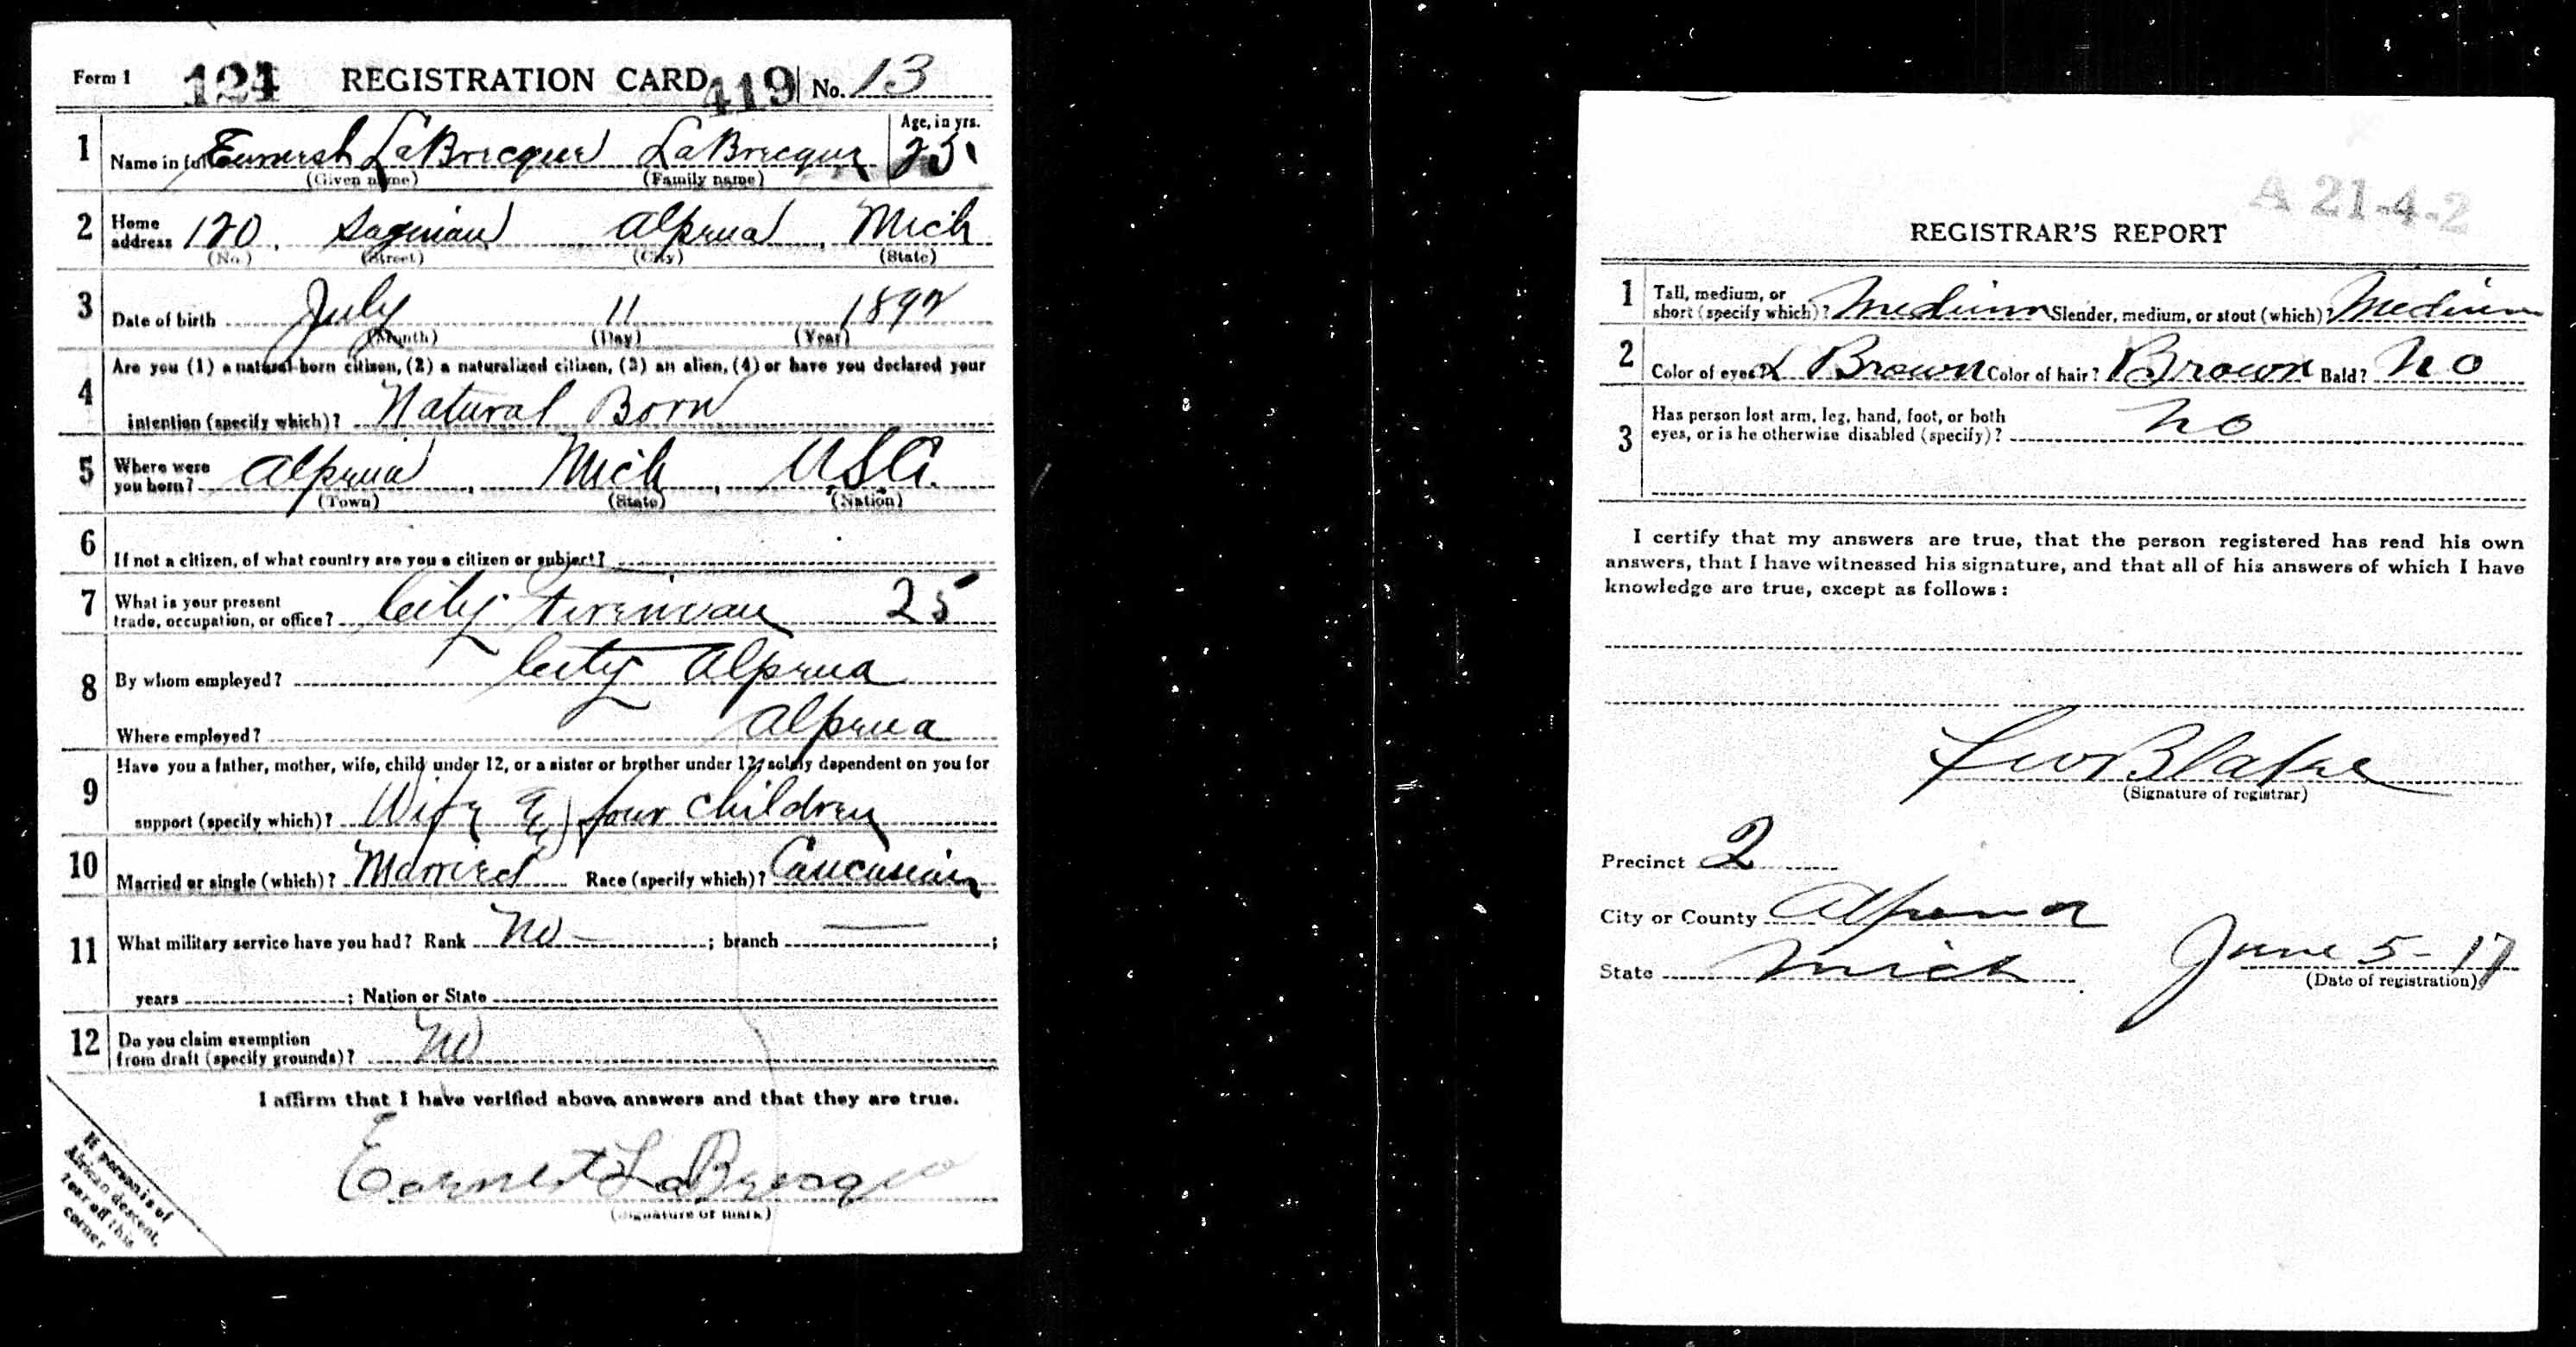 Form 1 124 REGISTRATION CARD 419 No. 13
1 Name in full LaBrecque LaBrecque Age, in yrs.
(Given name) (Family name)
2 Home address 120 Saginaw Alpena Mich
(No.) (Street) (City) (State)
3 Date of birth July 11 1892
(Month) (Day) (Year)
4 Are you (1) a natural-born citizen, (2) a naturalized citizen, (3) an alien, (4) or have you declared your
intention (specify which)? Natural Born
5 Where were you born? Alpena, Mich, USA.
(Town) (State) (Nation)
6 If not a citizen, of what country are you a citizen or subject?
7 What is your present trade, occupation, or office? City Fireman 25
8 By whom employed? City Alpena
Where employed? Alpena
9 Have you a father, mother, wife, child under 12, or a sister or brother under 12, solely dependent on you for
support (specify which)? Wife & four children
10 Married or single (which)? Married Race (specify which)? Caucasian
11 What military service have you had? Rank No — ; branch — ;
years ; Nation or State
12 Do you claim exemption from draft (specify grounds)? No
I affirm that I have verified above answers and that they are true.
Earnest LaBrecque
(Signature or mark)
If person is of
African descent,
tear off this
corner
A 21-4-2
REGISTRAR'S REPORT
1 Tall, medium, or short (specify which)? Medium Slender, medium, or stout (which)? Medium
2 Color of eyes? Brown Color of hair? Brown Bald? No
3 Has person lost arm, leg, hand, foot, or both
eyes, or is he otherwise disabled (specify)? No
I certify that my answers are true, that the person registered has read his own
answers, that I have witnessed his signature, and that all of his answers of which I have
knowledge are true, except as follows:
Blake
(Signature of registrar)
Precinct 2
City or County Alpena
State Mich June 5-17
(Date of registration)